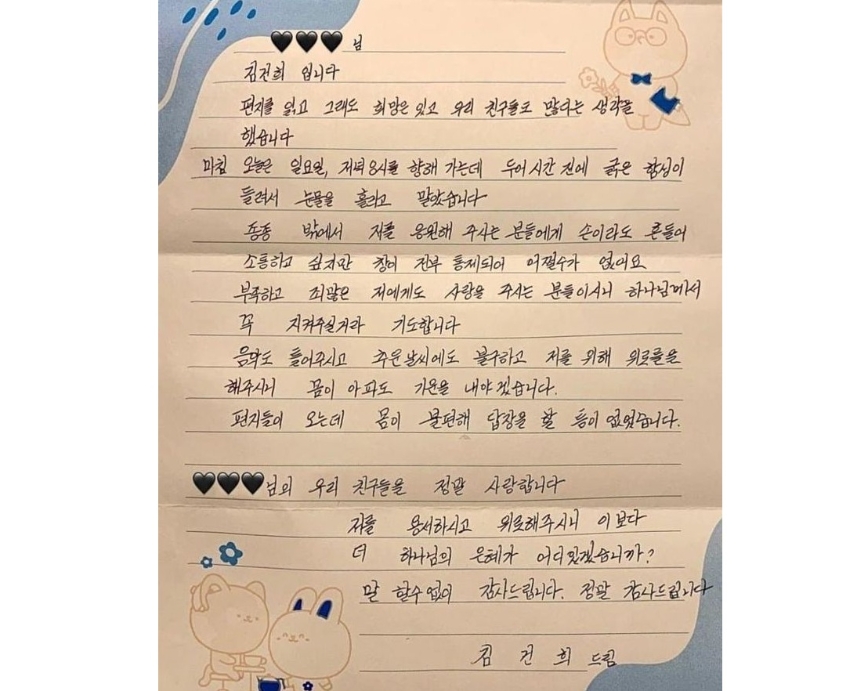 🖤🖤🖤 님
김건희 입니다
편지를 읽고 그래도 희망은 있고 우리 친구들도 많다는 생각을
했습니다
마침 오늘은 일요일, 저녁 8시를 향해 가는데 두어 시간 전에 굵은 함성이
들려서 눈물을 흘리고 말았습니다
종종 밖에서 저를 응원해 주시는 분들에게 손이라도 흔들어
소통하고 싶지만 창이 전부 통제되어 어쩔수가 없어요
부족하고 죄많은 저에게도 사랑을 주시는 분들이시니 하나님께서
꼭 지켜주실거라 기도합니다
음악도 틀어주시고 추운날씨에도 불구하고 저를 위해 위로를
해주시니 몸이 아파도 기운을 내야겠습니다.
편지들이 오는데 몸이 불편해 답장을 할 틈이 없었습니다.
🖤🖤🖤님의 우리 친구들을 정말 사랑합니다
저를 용서하시고 위로해주시니 이보다
더 하나님의 은혜가 어디있겠습니까?
말 할수없이 감사드립니다. 정말 감사드립니다
김 건 희 드림